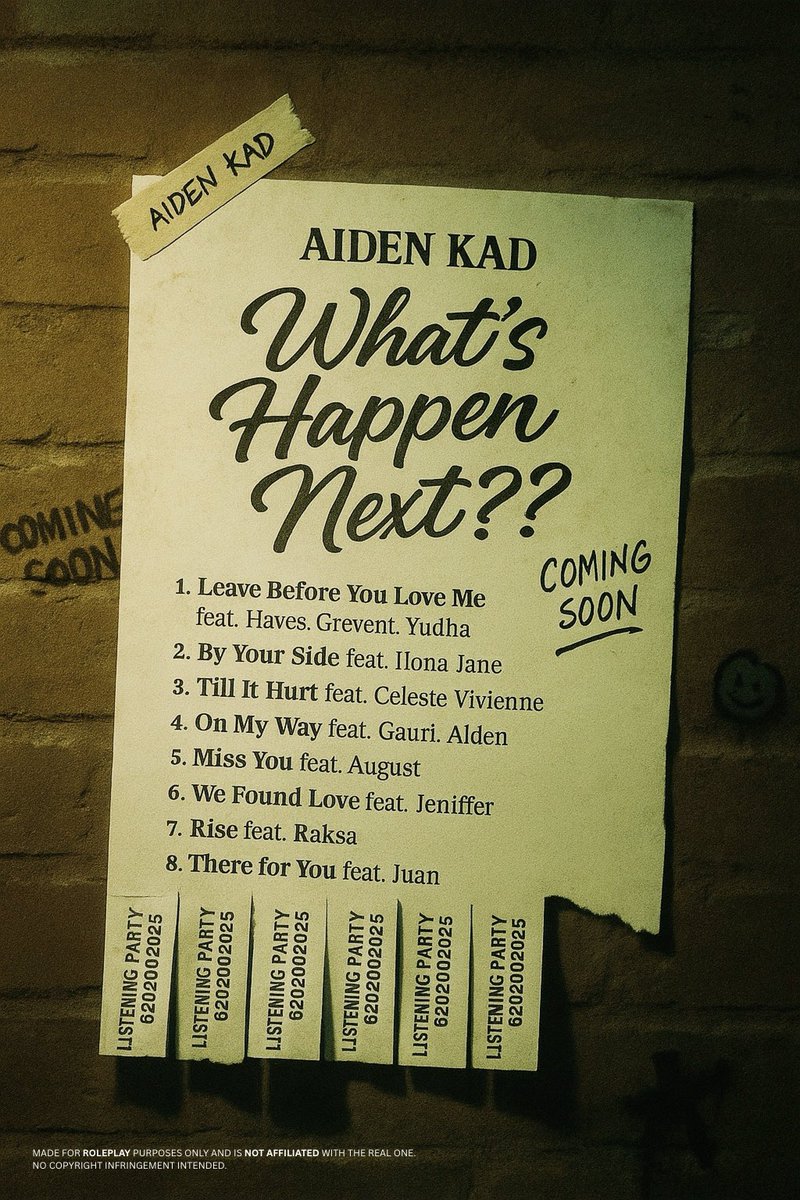 AIDEN KAD
AIDEN KAD
What's
Happen
Next??
COMING
SOON
COMINE
SOON
1. Leave Before You Love Me
feat. Haves. Grevent. Yudha
2. By Your Side feat. Ilona Jane
3. Till It Hurt feat. Celeste Vivienne
4. On My Way feat. Gauri. Alden
5. Miss You feat. August
6. We Found Love feat. Jeniffer
7. Rise feat. Raksa
8. There for You feat. Juan
LISTENING PARTY
6202002025
LISTENING PARTY
6202002025
LISTENING PARTY
6202002025
LISTENING PARTY
6202002025
LISTENING PARTY
6202002025
LISTENING PARTY
6202002025
MADE FOR ROLEPLAY PURPOSES ONLY AND IS NOT AFFILIATED WITH THE REAL ONE.
NO COPYRIGHT INFRINGEMENT INTENDED.